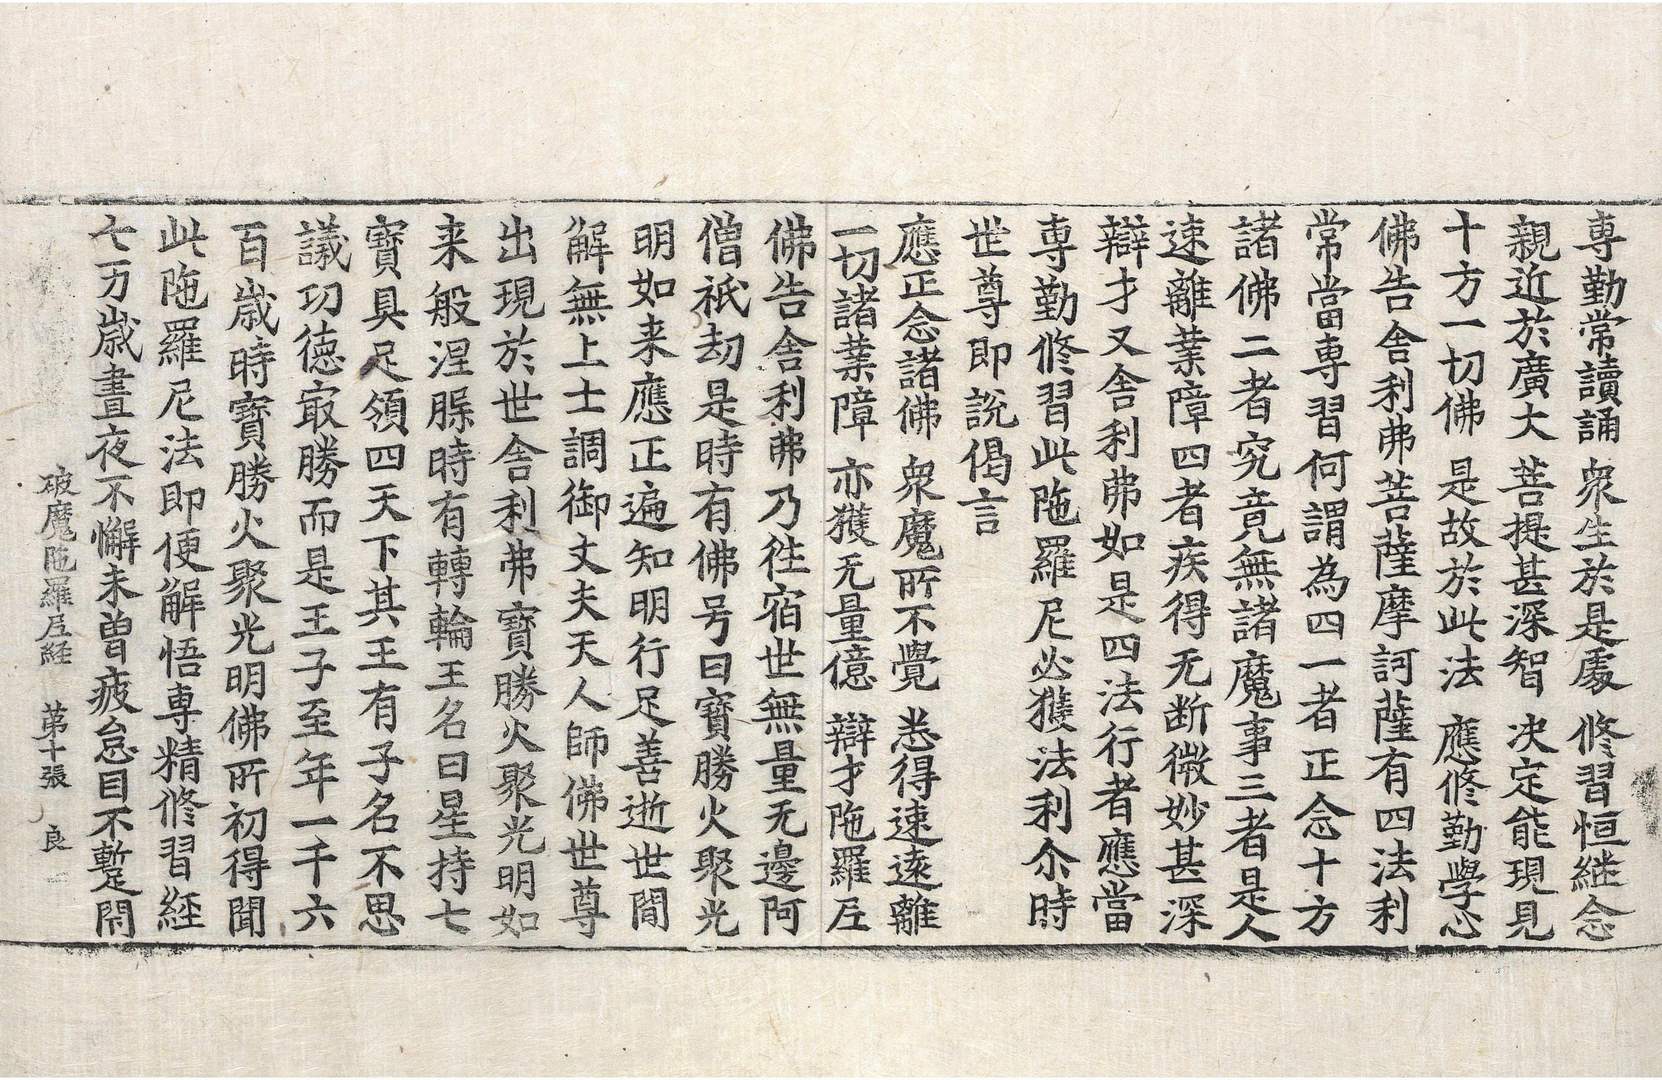 専勤常讀誦　衆生於是處　修習恒継念
親近於廣大　菩提甚深智　决定能現見
十方一切佛　是故於此法　應修勤學心
佛告舍利弗菩薩摩訶薩有四法利
常當専習何謂為四一者正念十方
諸佛二者究竟無諸魔事三者是人
速離業障四者疾得无断微妙甚深
辯才又舍利弗如是四法行者應當
専勤修習此陁羅尼必獲法利尒時
世尊即說偈言
應正念諸佛　衆魔所不覺　悉得速遠離
一切諸業障　亦獲无量億　辯才陁羅尼
佛告舍利弗乃徃宿世無量无邊阿
僧祇劫是時有佛号曰寳勝火聚光
明如来應正遍知明行足善逝世間
解無上士調御丈夫天人師佛世尊
出現於世舍利弗寳勝火聚光明如
来般涅槃時有轉輪王名曰星持七
寳具足領四天下其王有子名不思
議功德㝡勝而是王子至年一千六
百歲時寳勝火聚光明佛所初得聞
此陁羅尼法即便解悟専精修習經
七万歲晝夜不懈未曽疲怠目不蹔閇
破魔陁羅尼経　第十張　良